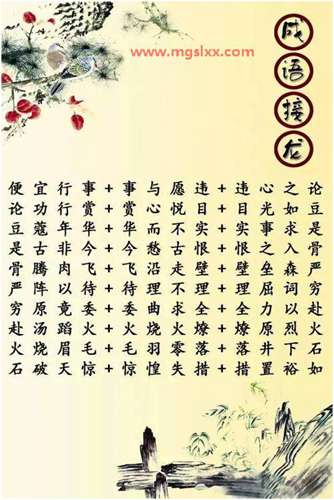 www.mgslxx.com
成语接龙
便宜行事+事与愿违+违心之论
论功行赏+赏心悦目+目光如豆
豆蔻年华+华而不实+实事求是
是古非今+今愁古恨+恨之入骨
骨腾肉飞+飞沿走壁+壁垒森严
严阵以待+待理不理+理屈词穷
穷原竟委+委曲求全+全力以赴
赴汤蹈火+火烧火燎+燎原烈火
火烧眉毛+毛羽零落+落井下石
石破天惊+惊惶失措+措置裕如